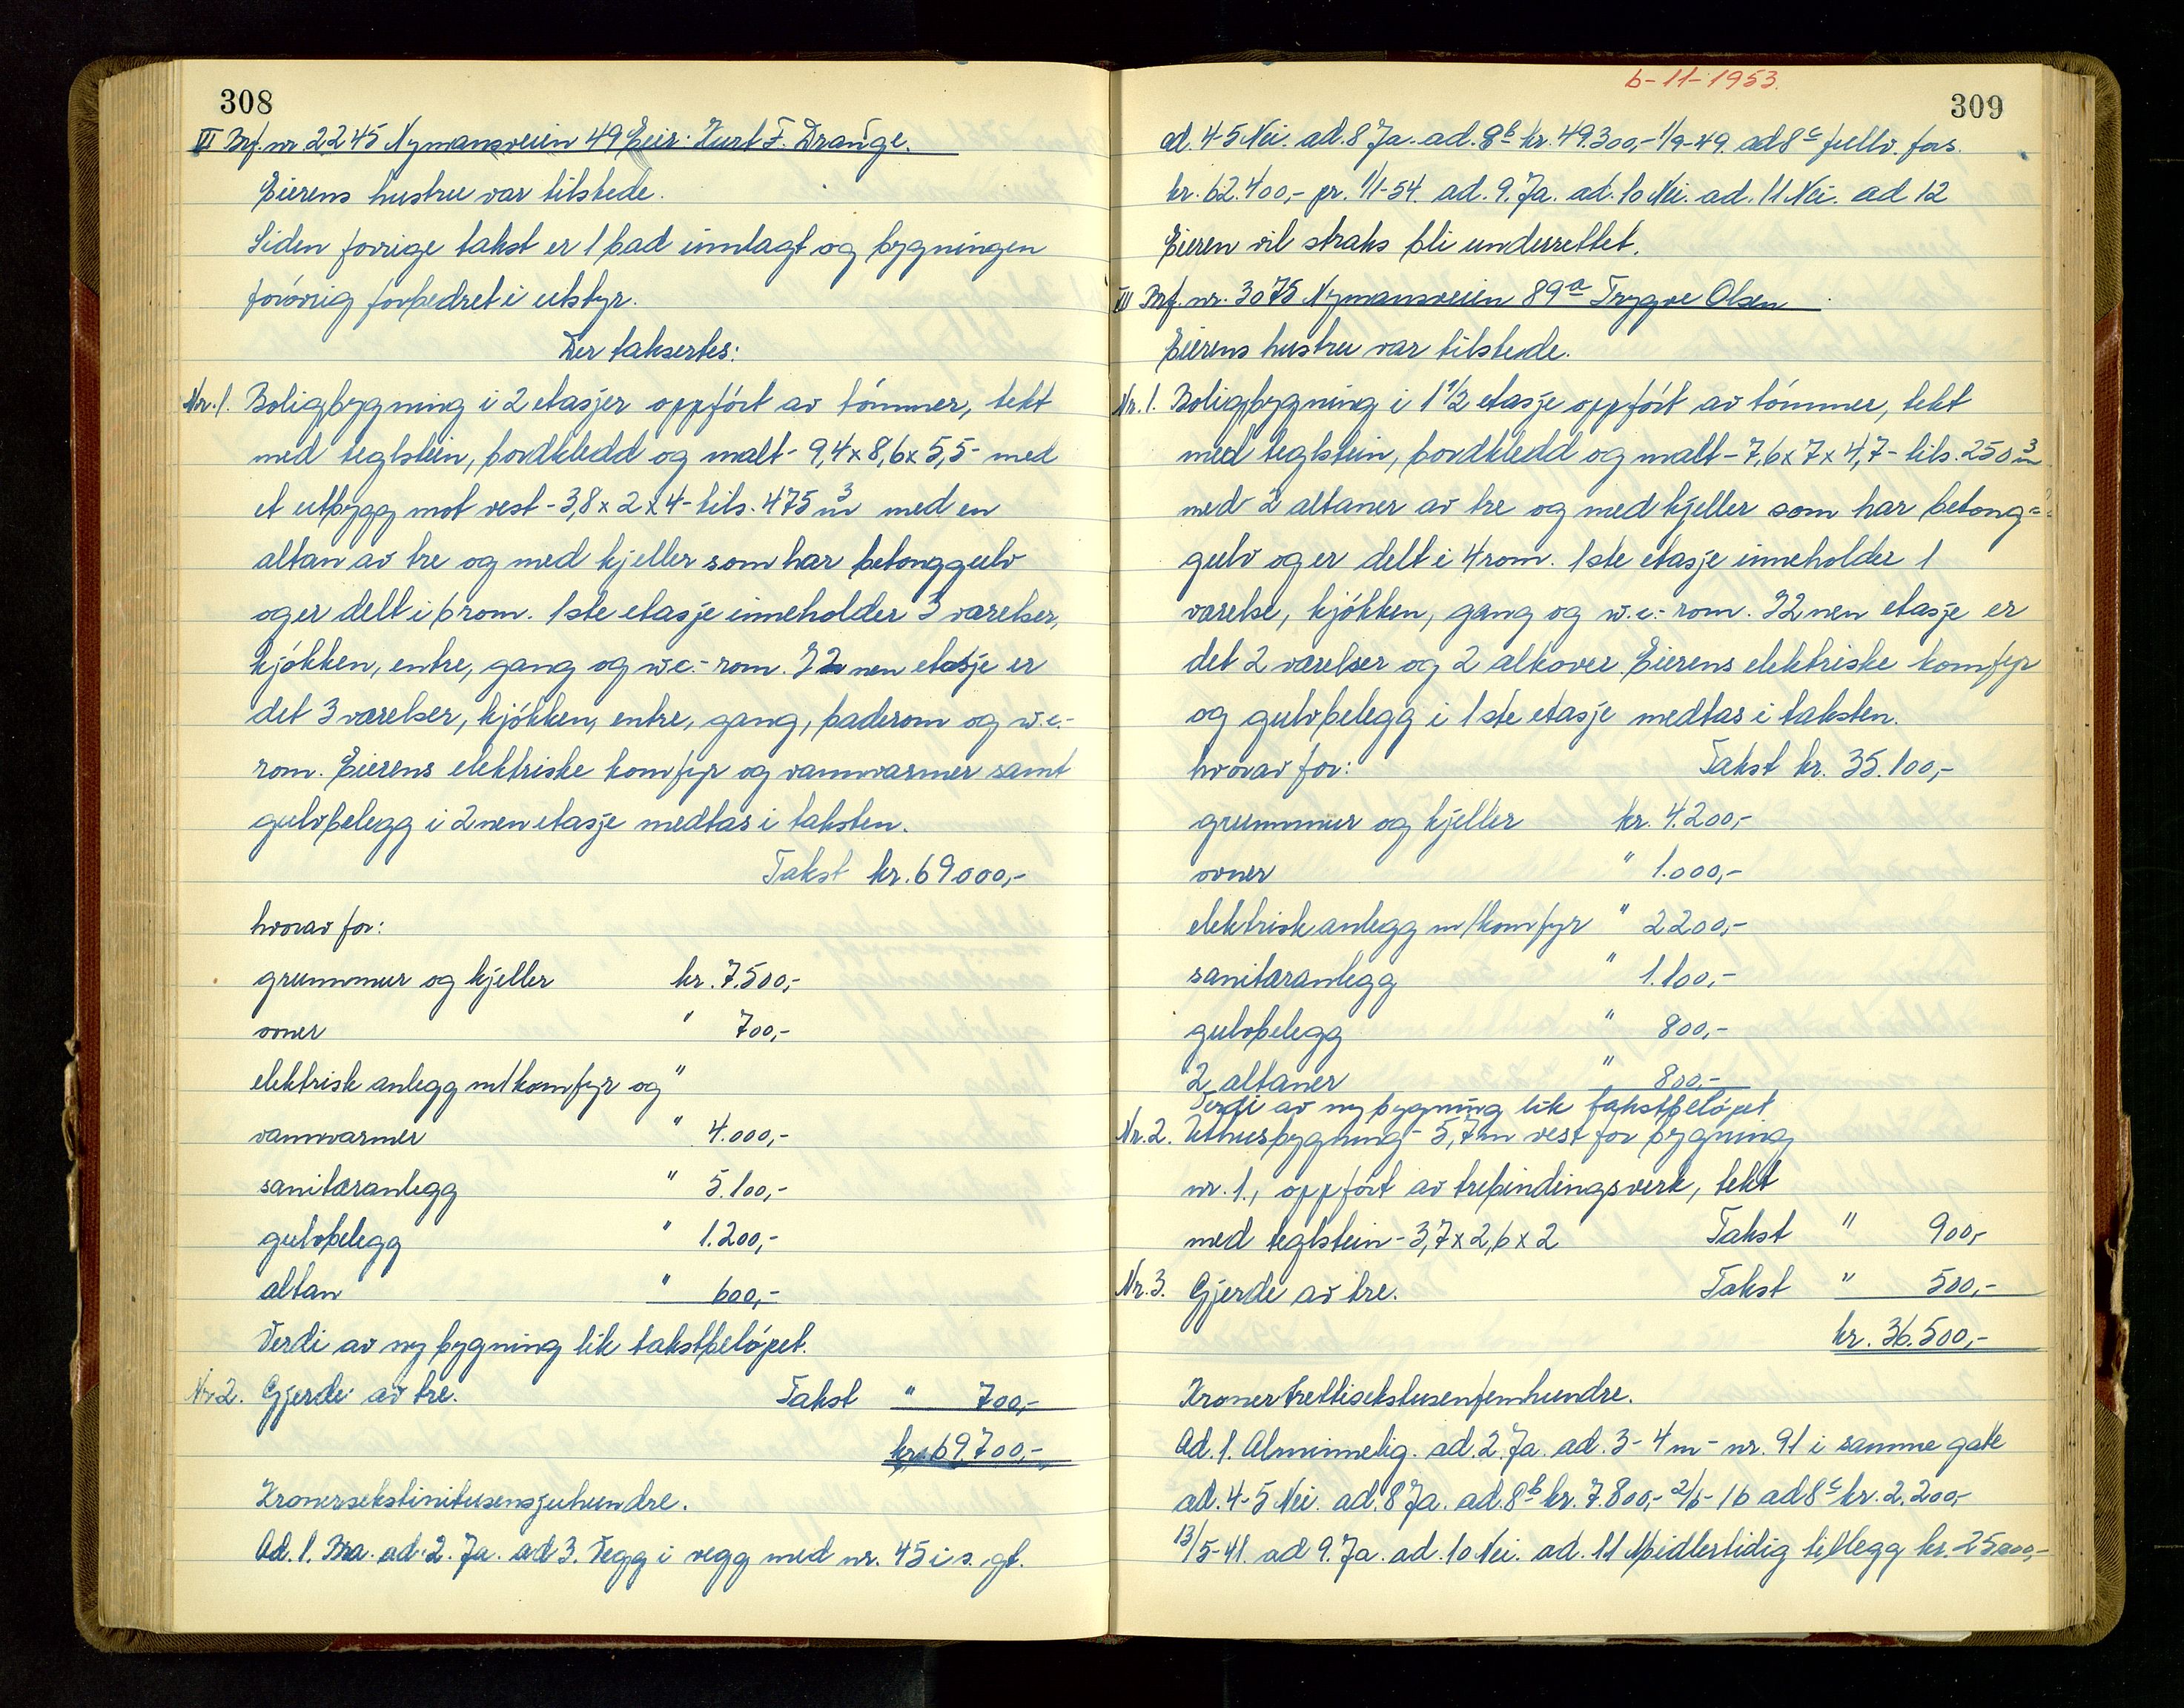 308
VI Brf. nr. 2245 Nymansveien 49 Eier: Kurt F. Drange.
Eierens hustru var tilstede.
Siden forrige takst er 1 bad innlagt og bygningen
forövrig forbedret i utstyr.
Der taksertes:
Nr. 1. Boligbygning i 2 etasjer oppfört av tömmer, tekt
med teglstein, bordkledd og malt - 9,4 x 8,6 x 5,5 - med
et utbygg mot vest - 3,8 x 2 x 4 - tils. 475 m³ med en
altan av tre og med kjeller som har betonggulv
og er delt i 6 rom. 1ste etasje inneholder 3 værelser,
kjökken, entre, gang og w.c.-rom. I 2nen etasje er
det 3 værelser, kjökken, entre, gang, baderom og w.c.-
rom. Eierens elektriske komfyr og vannvarmer samt
gulvbelegg i 2nen etasje medtas i taksten.
Takst kr. 69000,-
hvorav for:
grunnmur og kjeller kr. 7.500,-
ovner " 700,-
elektrisk anlegg m/komfyr og "
vannvarmer " 4.000,-
sanitæranlegg " 5.100,-
gulvbelegg " 1.200,-
altan " 600,-
Verdi av ny bygning lik takstbelöpet.
Nr. 2. Gjerde av tre. Takst " 700,-
kr. 69.700,-
Kronersekstinitusensjuhundre.
Ad. 1. Bra. ad. 2. Ja. ad 3. Vegg i vegg med nr. 45 i s. gt.
6-11-1953.
309
ad. 4-5 Nei. ad. 8 Ja. ad. 8b kr. 49.300,- 1/9-49. ad 8c fullv. fors.
kr. 62.400,- pr. 1/1-54. ad. 9. Ja. ad. 10 Nei. ad. 11 Nei. ad 12
Eieren vil straks bli underrettet.
VII Brf. nr. 3075 Nymansveien 89a Trygve Olsen
Eierens hustru var tilstede.
Nr. 1. Boligbygning i 1 1/2 etasje oppfört av tömmer, tekt
med teglstein, bordkledd og malt - 7,6 x 7 x 4,7 - tils. 250 m³
med 2 altaner av tre og med kjeller som har betong=
gulv og er delt i 4 rom. 1ste etasje inneholder 1
værelse, kjökken, gang og w.c.-rom. I 2nen etasje er
det 2 værelser og 2 alkover. Eierens elektriske komfyr
og gulvbelegg i 1ste etasje medtas i taksten.
hvorav for: Takst kr. 35.100,-
grunnmur og kjeller kr. 4.200,-
ovner " 1.000,-
elektrisk anlegg m/komfyr " 2200,-
sanitæranlegg " 1.100,-
gulvbelegg " 800,-
2 altaner " 800,-
Verdi av ny bygning lik takstbelöpet
Nr. 2. Uthusbygning - 5,7m vest for bygning
nr. 1., oppfört av trebindingsverk, tekt
med teglstein - 3,7 x 2,6 x 2 Takst " 900,-
Nr. 3. Gjerde av tre. Takst " 500,-
kr. 36.500,-
Kroner trettisekstusenfemhundre.
Ad. 1. Alminnelig. ad. 2. Ja. ad. 3 - 4 m - nr. 91 i samme gate
ad. 4-5 Nei. ad. 8 Ja. ad. 8b kr. 7.800,- 2/6-16 ad 8c kr. 2.200,-
13/5-41. ad 9. Ja. ad. 10 Nei. ad. 11 Midlertidig tillegg kr. 25000,-